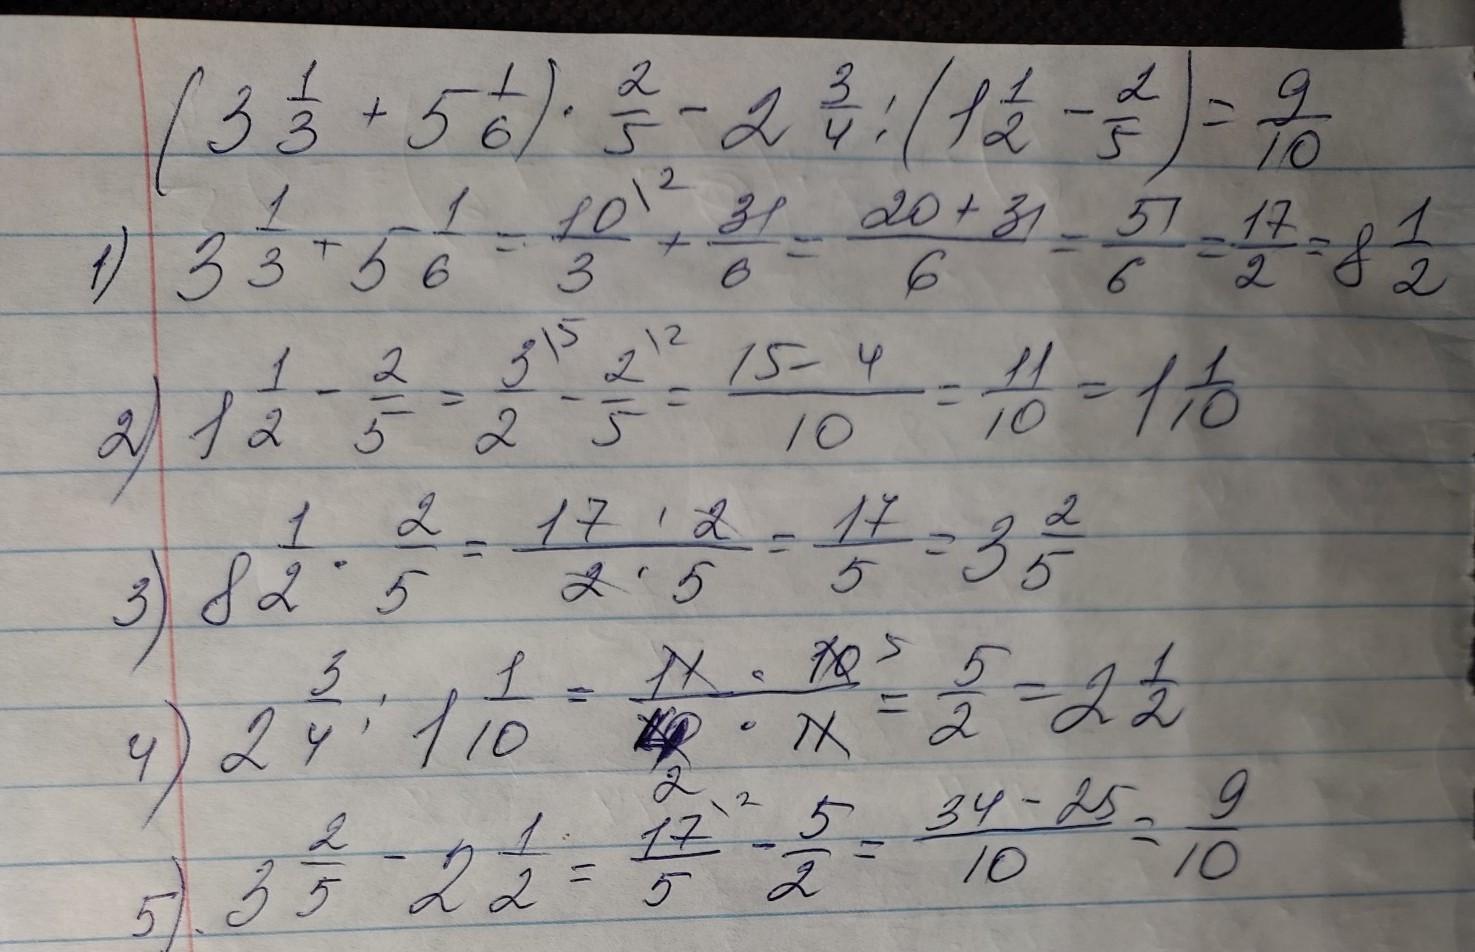 (3 1/3 + 5 1/6) · 2/5 - 2 3/4 : (1 1/2 - 2/5) = 9/10
1) 3 1/3 + 5 1/6 = 10\2/3 + 31/6 = 20 + 31/6 = 51/6 = 17/2 = 8 1/2
2) 1 1/2 - 2/5 = 3\5/2 - 2\2/5 = 15 - 4/10 = 11/10 = 1 1/10
3) 8 1/2 · 2/5 = 17 · 2/2 · 5 = 17/5 = 3 2/5
4) 2 3/4 : 1 1/10 = 11 · 10 5/4 2 · 11 = 5/2 = 2 1/2
5) 3 2/5 - 2 1/2 = 17\2/5 - 5/2 = 34 - 25/10 = 9/10